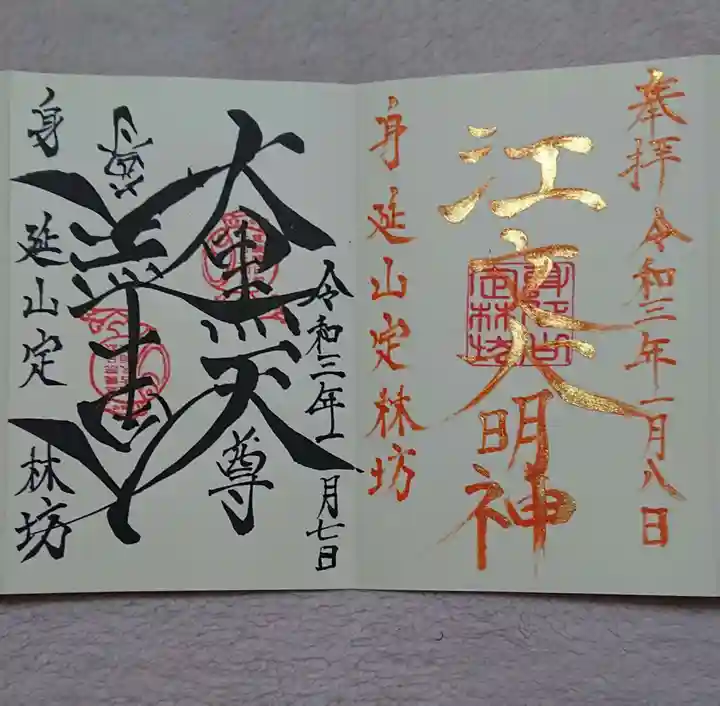 奉拝 令和三年一月八日
江文大明神
身延山定林坊
身延山
定林坊
令和三年一月七日
大黒天尊
身延山定林坊